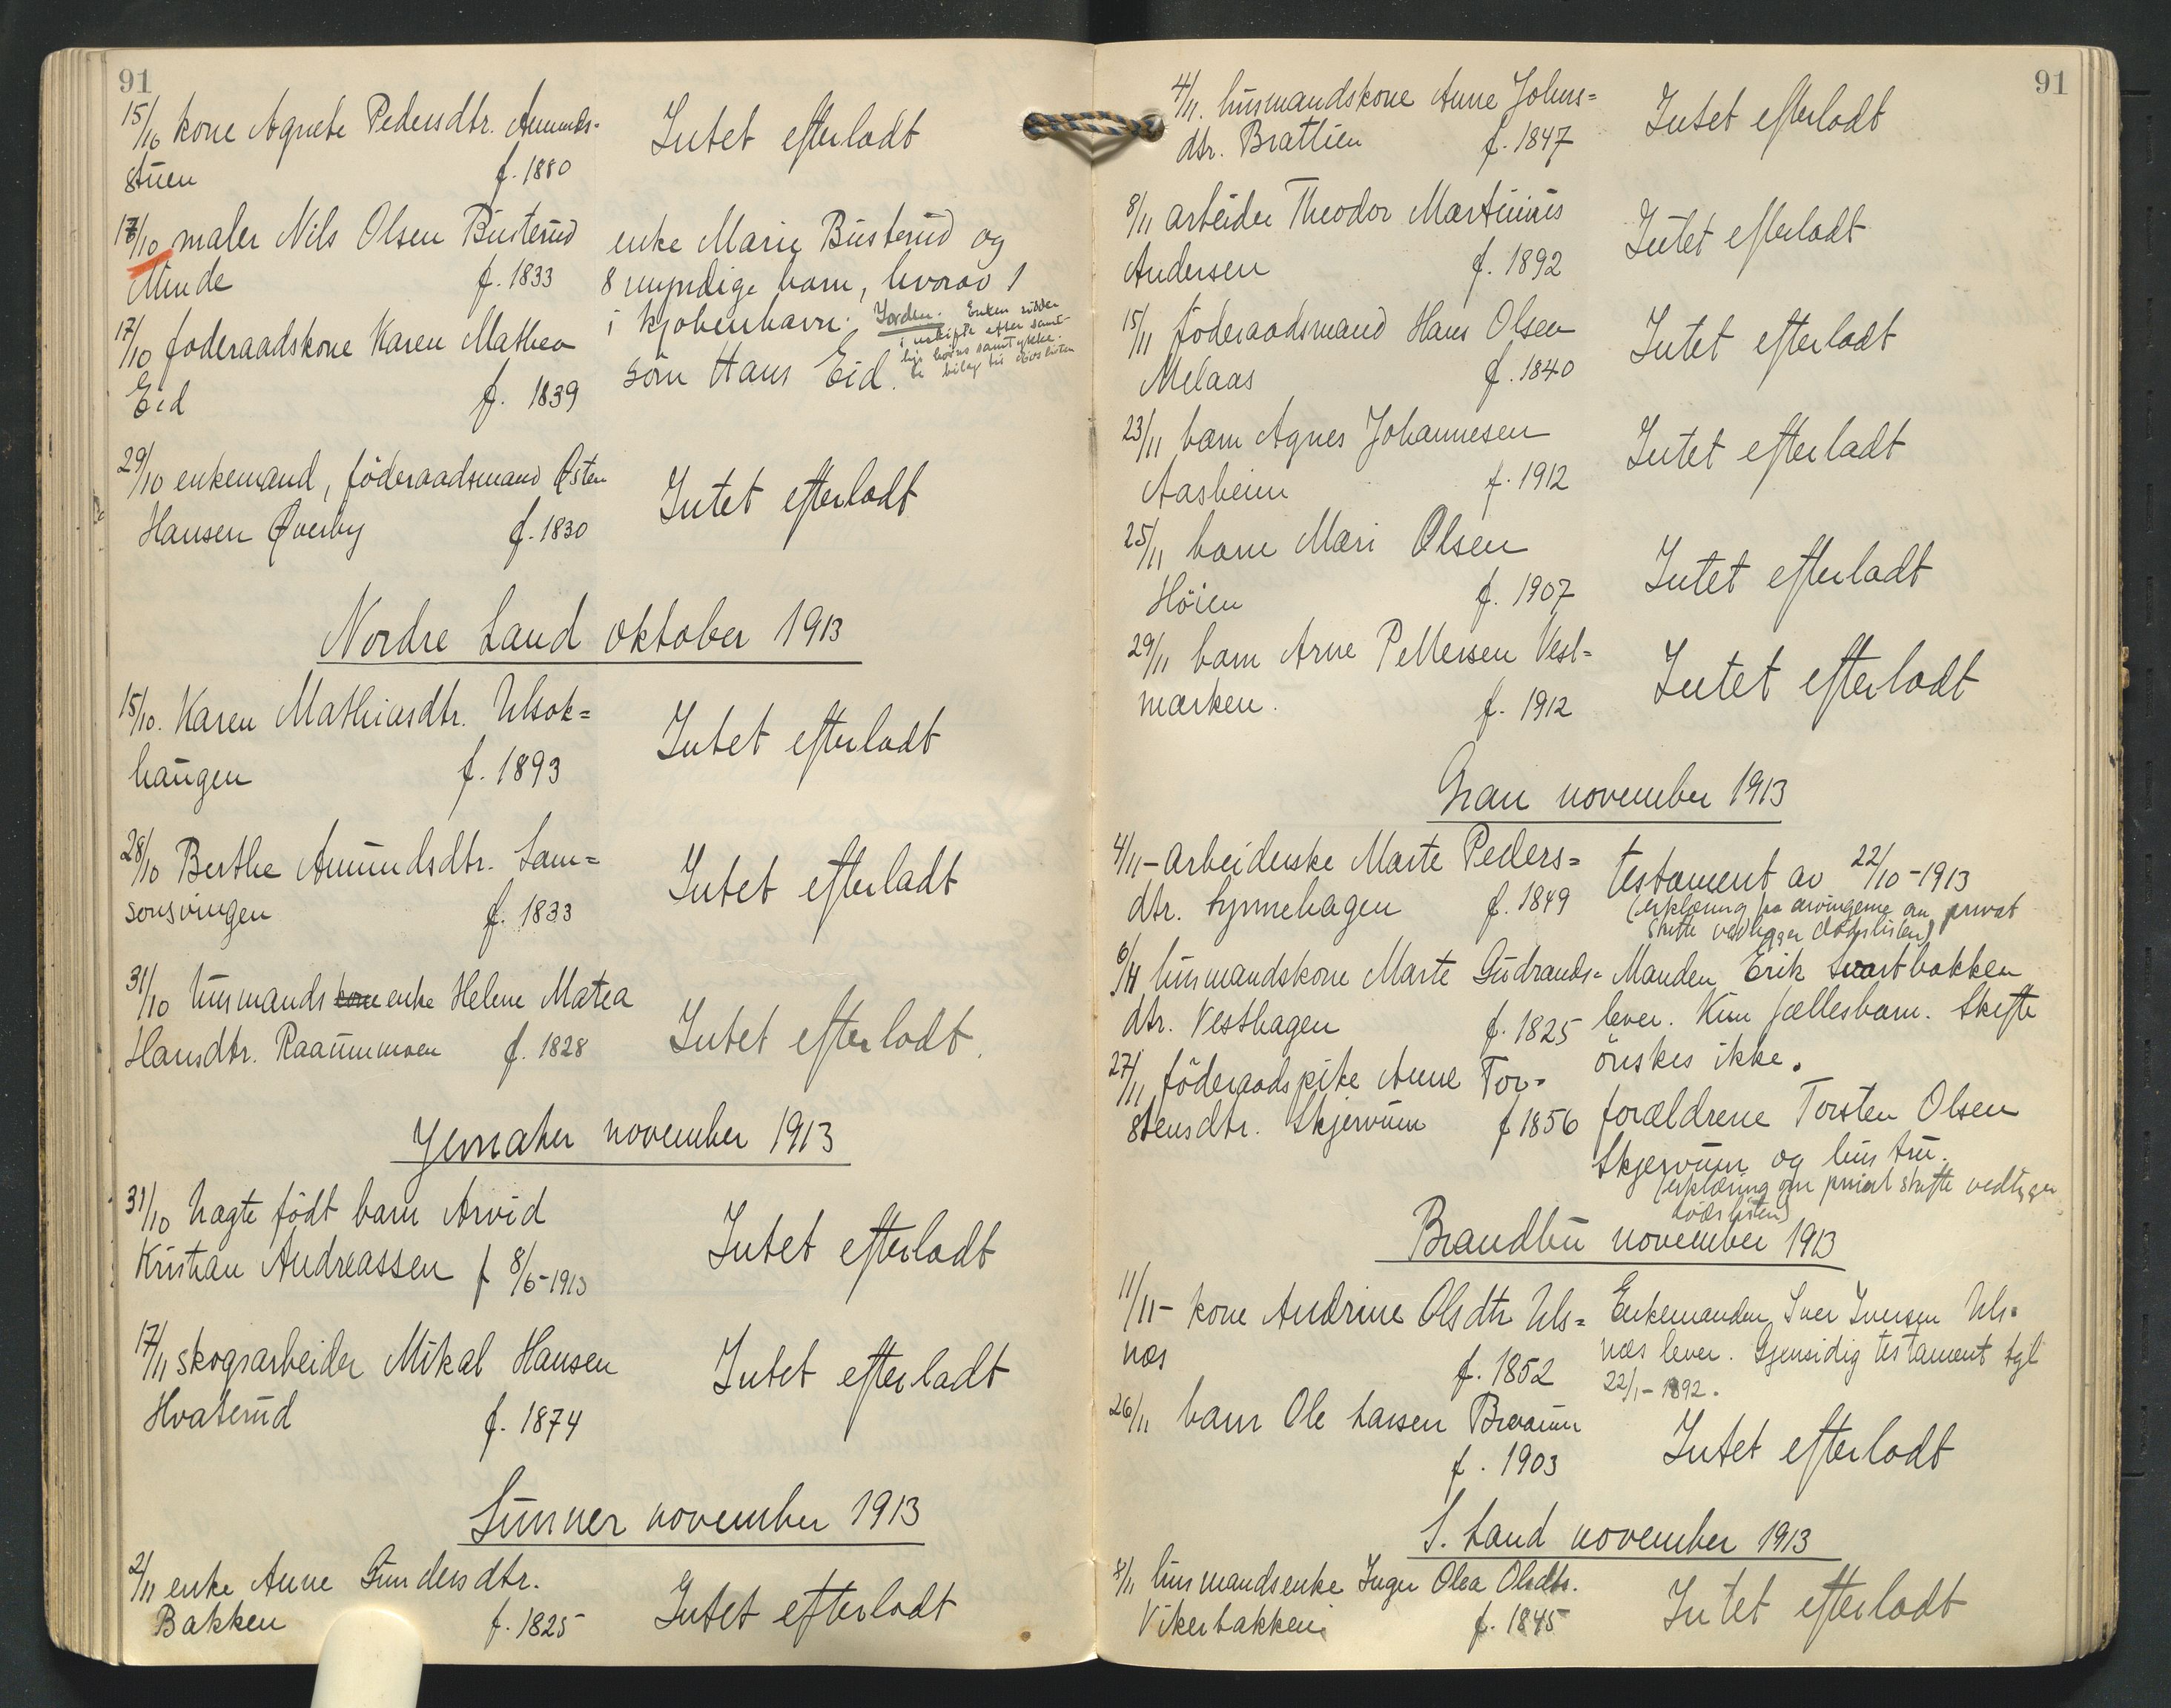 91
15/10 kone Agnete Pedersdtr. Amunds-
stuen f. 1880
Intet efterladt
17/10 maler Nils Olsen Busterud
Minde f. 1833
enke Marie Busterud og
8 myndige barn, hvorav 1
i Kjøbenhavn. Jorden. Enken sidder
i uskifte efter samt-
lige barns samtykke.
17/10 føderaadskone Karen Mathea
Eid f. 1839
søn Hans Eid.
29/10 enkemand, føderaadsmand Østen
Hansen Øverby f. 1830
Intet efterladt
Nordre Land oktober 1913
15/10. Karen Mathiasdtr. Ulsok=
haugen f. 1893
Intet efterladt
28/10 Berthe Amundsdtr. Lam=
sonsvingen f. 1833
Intet efterladt
31/10 husmands kone enke Helene Matea
Hansdtr. Raaummoen f. 1828
Intet efterladt.
Jevnaker november 1913
31/10 uægte født barn Arvid
Kristian Andreassen f 8/6-1913
Intet efterladt
17/11 skogsarbeider Mikal Hansen
Hvaterud f. 1874
Intet efterladt
Lunner november 1913
2/11 enke Anne Gundersdtr.
Bakken f. 1825
Intet efterladt
91
4/11. husmandskone Anne Johns=
dtr. Brattlien f. 1847
Intet efterladt
8/11 arbeider Theodor Martinius
Andersen f. 1892
Intet efterladt
15/11 føderaadsmand Hans Olsen
Melaas f. 1840
Intet efterladt
23/11 barn Agnes Johannesen
Aasheim f. 1912
Intet efterladt
25/11 barn Mari Olsen
Høien f. 1907
Intet efterladt
29/11 barn Arne Pettersen Vest=
marken. f. 1912
Intet efterladt
Gran november 1913
4/11- arbeiderske Marte Peders=
dtr. Lynnehagen f. 1849
testament av 22/10-1913
(erklæring fra arvingerne om privat
skifte vedligger dødslisten)
6/11 husmandskone Marte Gudrands=
dtr. Vesthagen f. 1825
Manden Erik Svartbakken
lever. Kun fællesbarn. Skifte
ønskes ikke.
27/11 føderaadspike Anne Tor-
stensdtr. Skjervum f 1856
forældrene Torsten Olsen
Skjervum og hustru.
(erklæring om privat skifte vedligger
dødslisten)
Brandbu november 1913
11/11- kone Andrine Olsdtr Uls=
næs f. 1852
Enkemanden Iver Iversen Uls=
næs lever. Gjensidig testament tgl
22/1-1892.
26/11 barn Ole Larsen
f. 1903
Intet efterladt
S. Land november 1913
8/11 husmandsenke Inger Olea Olsdtr.
Vikerbakken f. 1845
Intet efterladt